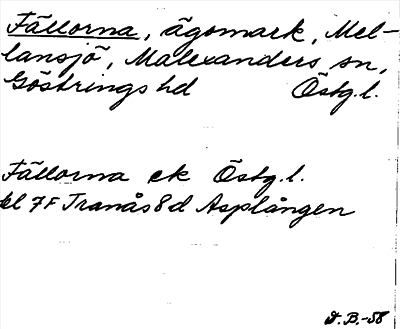 Fällorna, ägomark, Mel-
lansjö, Malexanders sn,
Göstrings hd Östg.l.
Fällorna ek Östg.l.
bl 7F Tranås 8d Asplången
D.B.-58